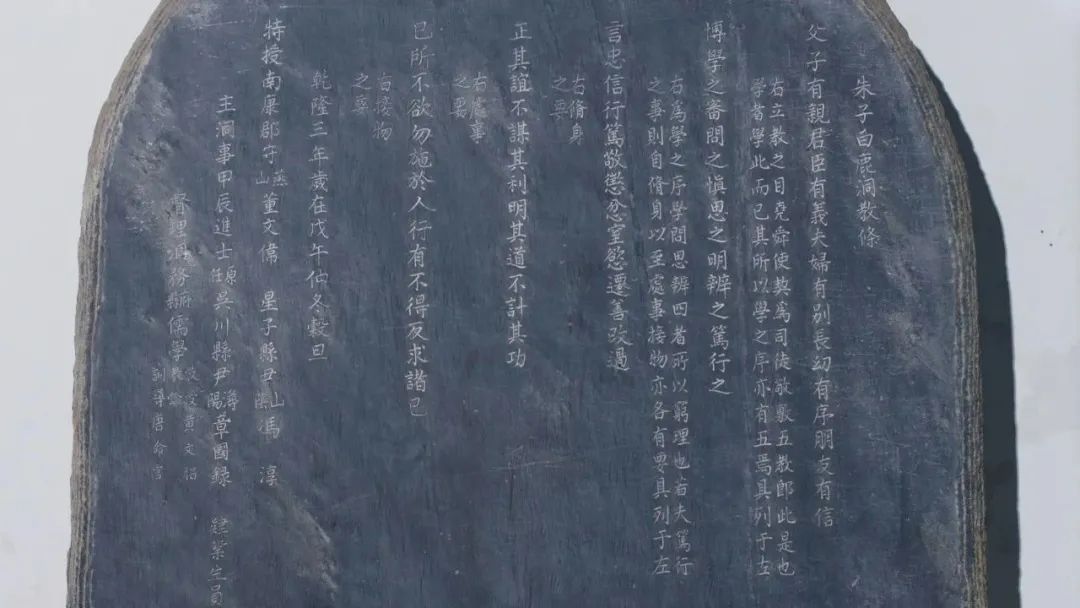 朱子白鹿洞教條
父子有親君臣有義夫婦有別長幼有序朋友有信
右立教之目堯舜使契為司徒敬敷五教即此是也
學者學此而已其所以學之序亦有五焉具列于左
博學之審問之慎思之明辨之篤行之
右為學之序學問思辨四者所以窮理也若夫篤行
之事則自脩身以至處事接物亦各有要具列于左
言忠信行篤敬懲忿窒慾遷善改過
右脩身
之要
正其誼不謀其利明其道不計其功
右處事
之要
已所不欲勿施於人行有不得反求諸已
右接物
之要
乾隆三年歲在戊午仲冬穀旦
特授南康郡守燕山董文偉 星子縣尹山陰馮 淳
主洞事甲辰進士原任吳川縣尹潯陽章國録 肄業生員
督理洞務縣儒學
教諭黃文
訓導唐命官